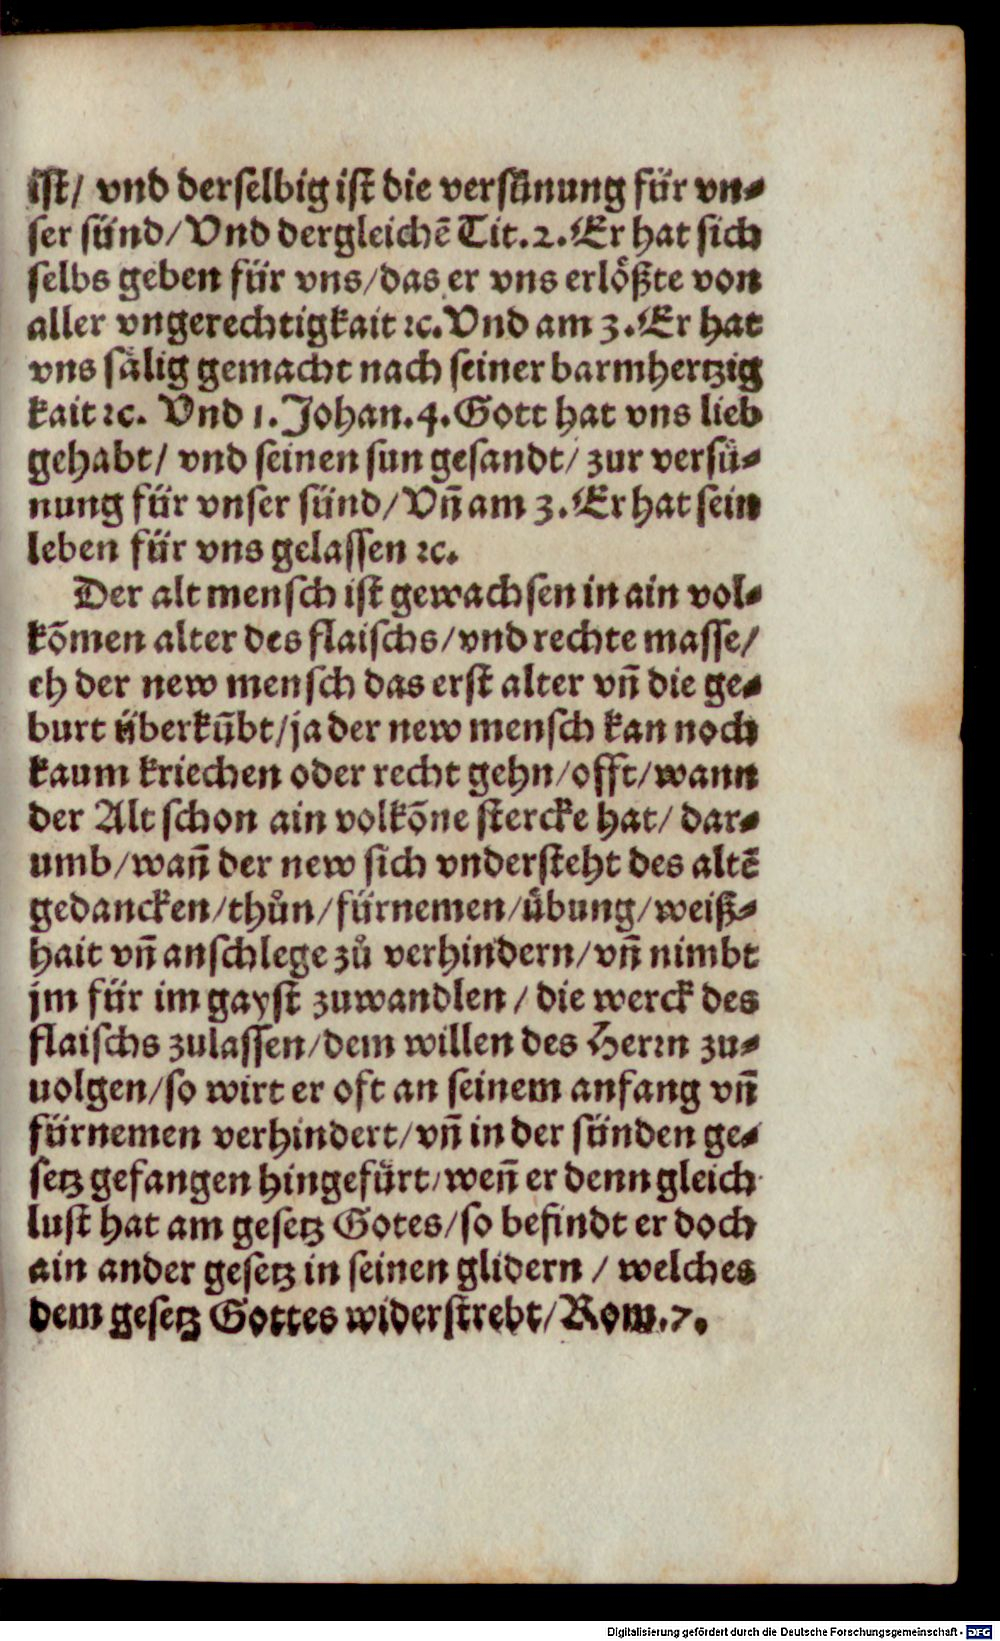 ist/ vnd derselbig ist die versünung für vn⸗
ser sünd/Vnd dergleichē Tit.2.Er hat sich
selbs geben für vns/das er vns erlößte von
aller vngerechtigkait ꝛc.Vnd am 3.Er hat
vns sälig gemacht nach seiner barmhertzig
kait ꝛc. Vnd 1.Johan.4.Gott hat vns lieb
gehabt/ vnd seinen sun gesandt/ zur versü⸗
nung für vnser sünd/Vñ am 3.Er hat sein
leben für vns gelassen ꝛc.
Der alt mensch ist gewachsen in ain vol⸗
kōmen alter des flaischs/vnd rechte masse/
eh der new mensch das erst alter vñ die ge⸗
burt überkūbt/ja der new mensch kan noch
kaum kriechen oder recht gehn/offt/wann
der Alt schon ain volkōne stercke hat/ dar⸗
umb/wañ der new sich vndersteht des altē
gedancken/thůn/fürnemen/übung/weiß⸗
hait vñ anschlege zů verhindern/vñ nimbt
jm für im gayst zuwandlen / die werck des
flaischs zulassen/dem willen des Herrn zu⸗
uolgen/so wirt er oft an seinem anfang vñ
fürnemen verhindert/vñ in der sünden ge⸗
setz gefangen hingefürt/weñ er denn gleich
lust hat am gesetz Gotes/so befindt er doch
ain ander gesetz in seinen glidern / welches
dem gesetz Gottes widerstrebt/Rom.7.
Digitalisierung gefördert durch die Deutsche Forschungsgemeinschaft - DFG